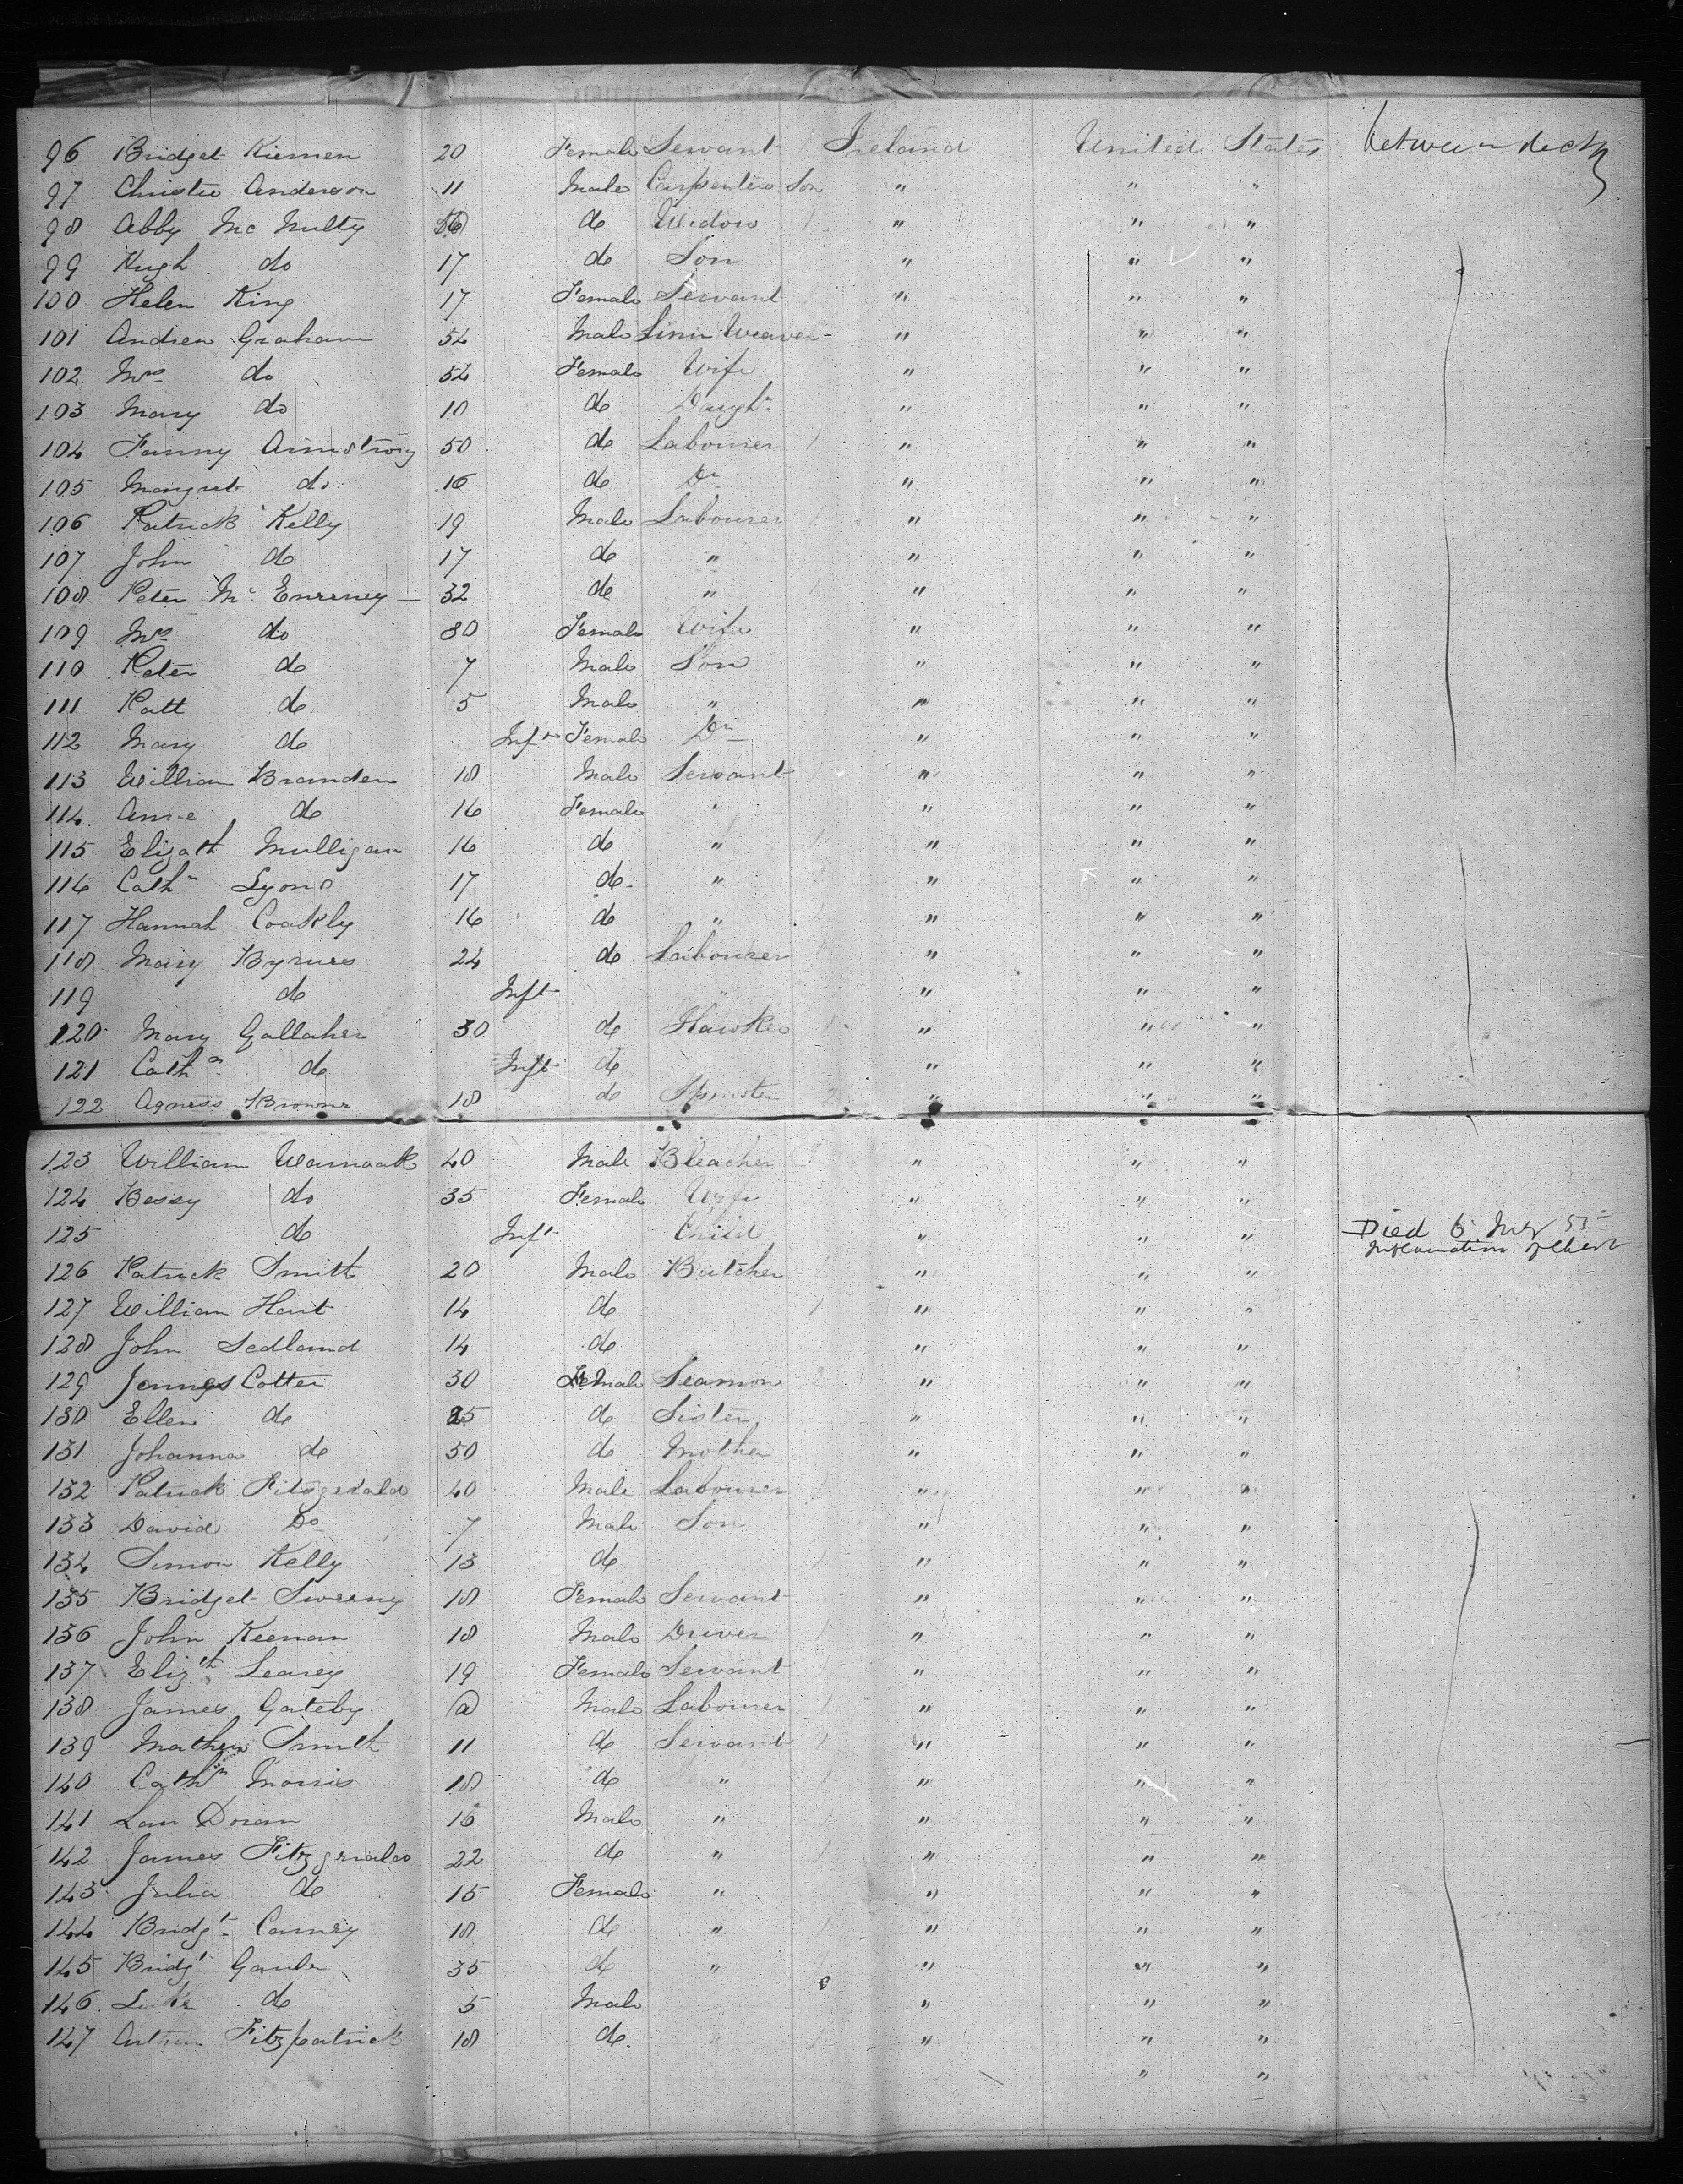 96 Bridget Kiernen 20 Female Servant Ireland United States between decks
97 Christie Anderson 11 Male Carpenters Son " " "
98 Abby Mc Nulty do Widow " " "
99 Hugh do 17 do Son " " "
100 Helen King 17 Female Servant " " "
101 Andrew Graham 54 Male Linin Weaver " " "
102 Mrs do 54 Female Wife " " "
103 Mary do 10 do Daugh " " "
104 Fanny Armstrong 50 do Labourer " " "
105 Margret do 16 do Dr " " "
106 Patrick Kelly 19 Male Labourer " " "
107 John do 17 do " " " "
108 Peter Mc Enerney 32 do " " " "
109 Mrs do 30 Female Wife " " "
110 Peter do 7 Male Son " " "
111 Patt do 5 Male " " " "
112 Mary do Inft Female Dr " " "
113 William Bramden 18 Male Servant " " "
114 Anne do 16 Female " " " "
115 Elizath Mulligan 16 do " " " "
116 Cathn Lyons 17 do " " " "
117 Hannah Coakly 16 do " " " "
118 Mary Byrnes 24 do Labourer " " "
119 do Inft " " "
120 Mary Gallaher 30 do Hawker " " "
121 Cath do Inft do " " "
122 Agness Browne 18 do Spinster " " "
123 William Warnoak 40 Male Bleacher " " "
124 Bessy do 35 Female Wife " " "
125 do Inft Child " " " Died 6 55 Inflamation of Chest
126 Patrick Smith 20 Male Butcher " " "
127 William Hart 14 do " " "
128 John Sedland 14 do " " "
129 Cotter 30 Female Seamon " " "
130 Ellen do 25 do Sister " " "
131 Johanna do 50 do Mother " " "
132 Patrick Fitzgerald 40 Male Labourer " " "
133 David Do 7 Male Son " " "
134 Simon Kelly 13 do " " "
135 Bridget Sweeny 18 Female Servant " " "
136 John Keenan 18 Male Driver " " "
137 Elizth Learey 19 Female Servant " " "
138 James Gateby Male Labourer " " "
139 Mathew Smith 11 do Servant " " "
140 Cathn Morris 18 do " " " "
141 Lau Doran 16 Male " " " "
142 James Fitzgerald 22 do " " " "
143 Julia do 15 Female " " " "
144 Bridgt Carney 18 do " " " "
145 Bridgt 35 do " " " "
146 Luke do 5 Male " " "
147 Fitzpatrick 18 do " " "
" "